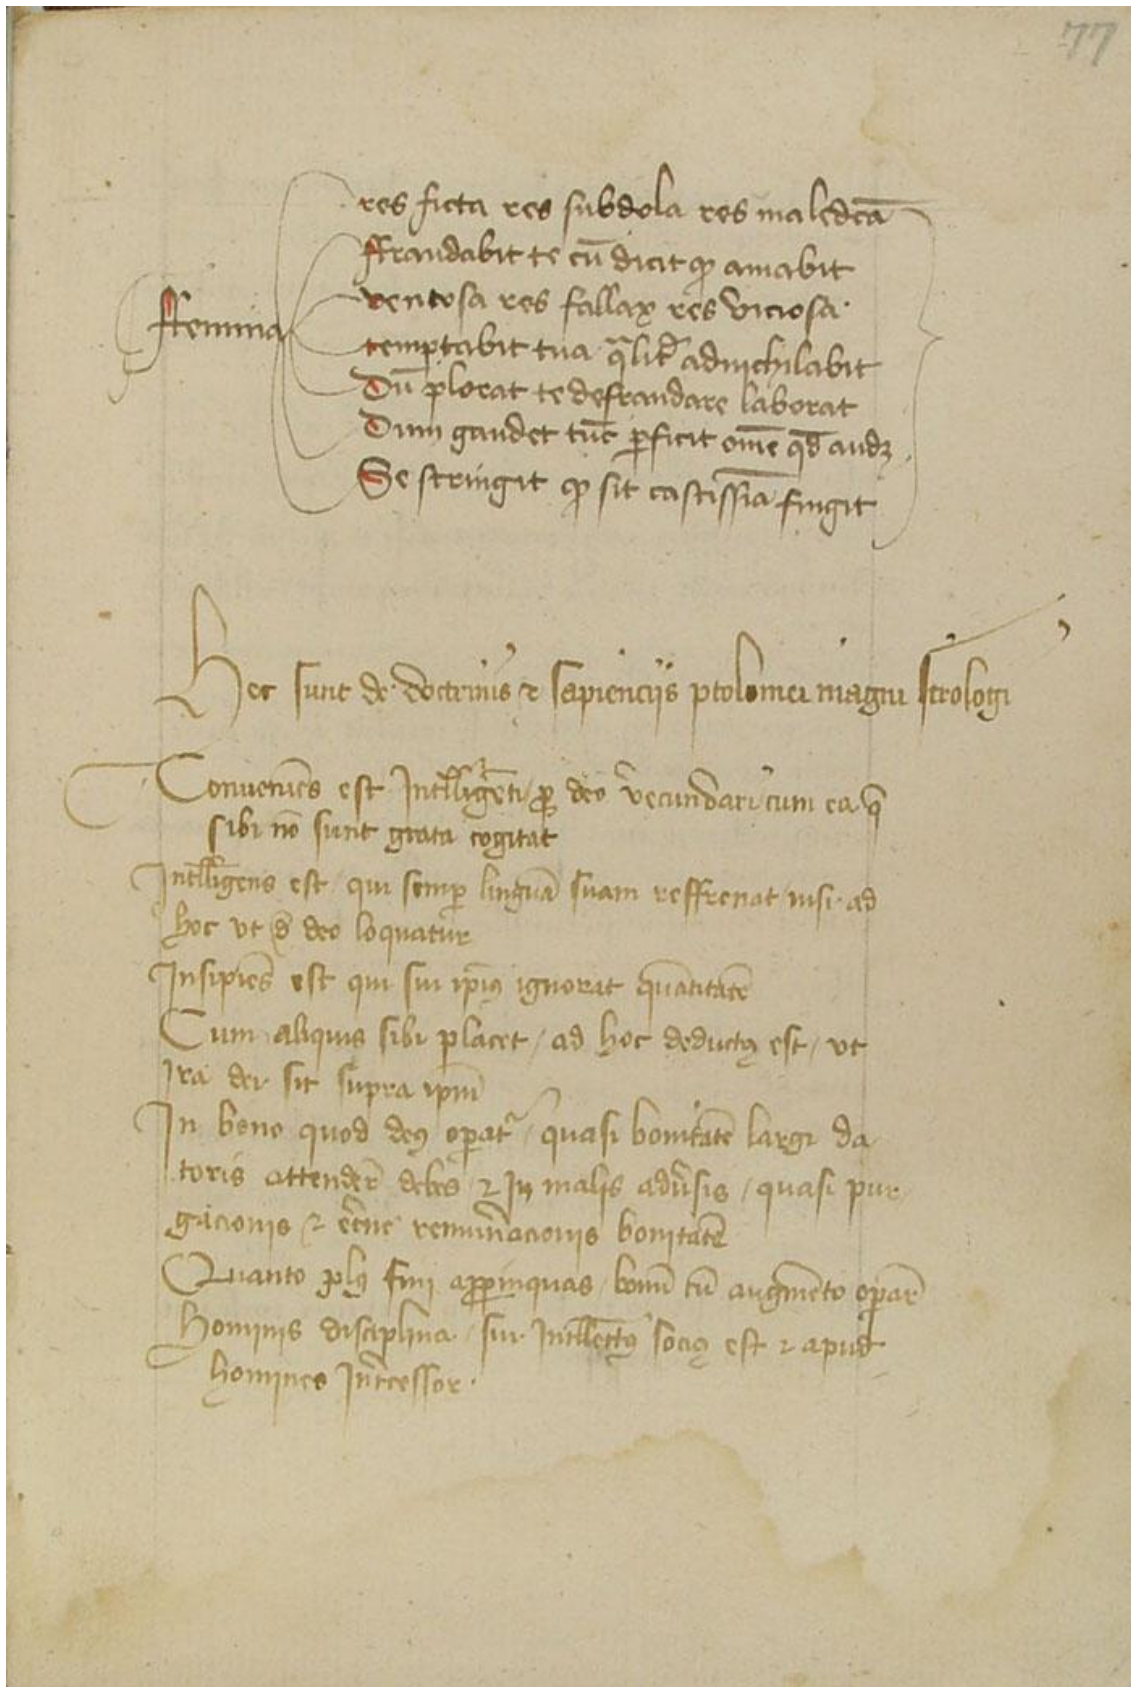 77
res ficta res subdola res maledcā
ffraudabit te cū dicit ꝙ amabit
ventosa res fallax res viciosa
ffemina
temptabit tua qͣlit͛ adnichilabit
Dū plorat te defraudare laborat
Dum gaudet tūc ꝑficit om̄e qd̄ audꝫ
Se stringit ꝙ sit castissīa fingit
Hec sunt de doctrinis ⁊ sapiencijs ptolomei magni strologi
Conueniēs est Intll̄igēti ꝓ deo v͛ecundari cum ea q̄
sibi nō sunt grata cogitat
Intll̄igens est / qui semꝑ linguā suam reffrenat nisi ad
hoc vt d̄ deo loquatur
Insipiēs est qui sui ip̄iꝰ ignorat quātitatē
Cum aliquis sibi placet / ad hoc deductꝰ est / vt
Ira dei sit supra ip̄m
In bono quod deꝰ oꝑat᷑ / quasi bonitatē largi da
toris attender̄ debes ⁊ In malis adu͛sis / quasi pur
gacionis ⁊ et͛ne remun͛acionis bonitatē
Quanto plꝰ fini aꝓpinquas / bonū cū augmēto oꝑar̄
Hominis disciplina / sui Intll̄ectꝰ sociꝰ est ⁊ apud
homines Int͛cessor